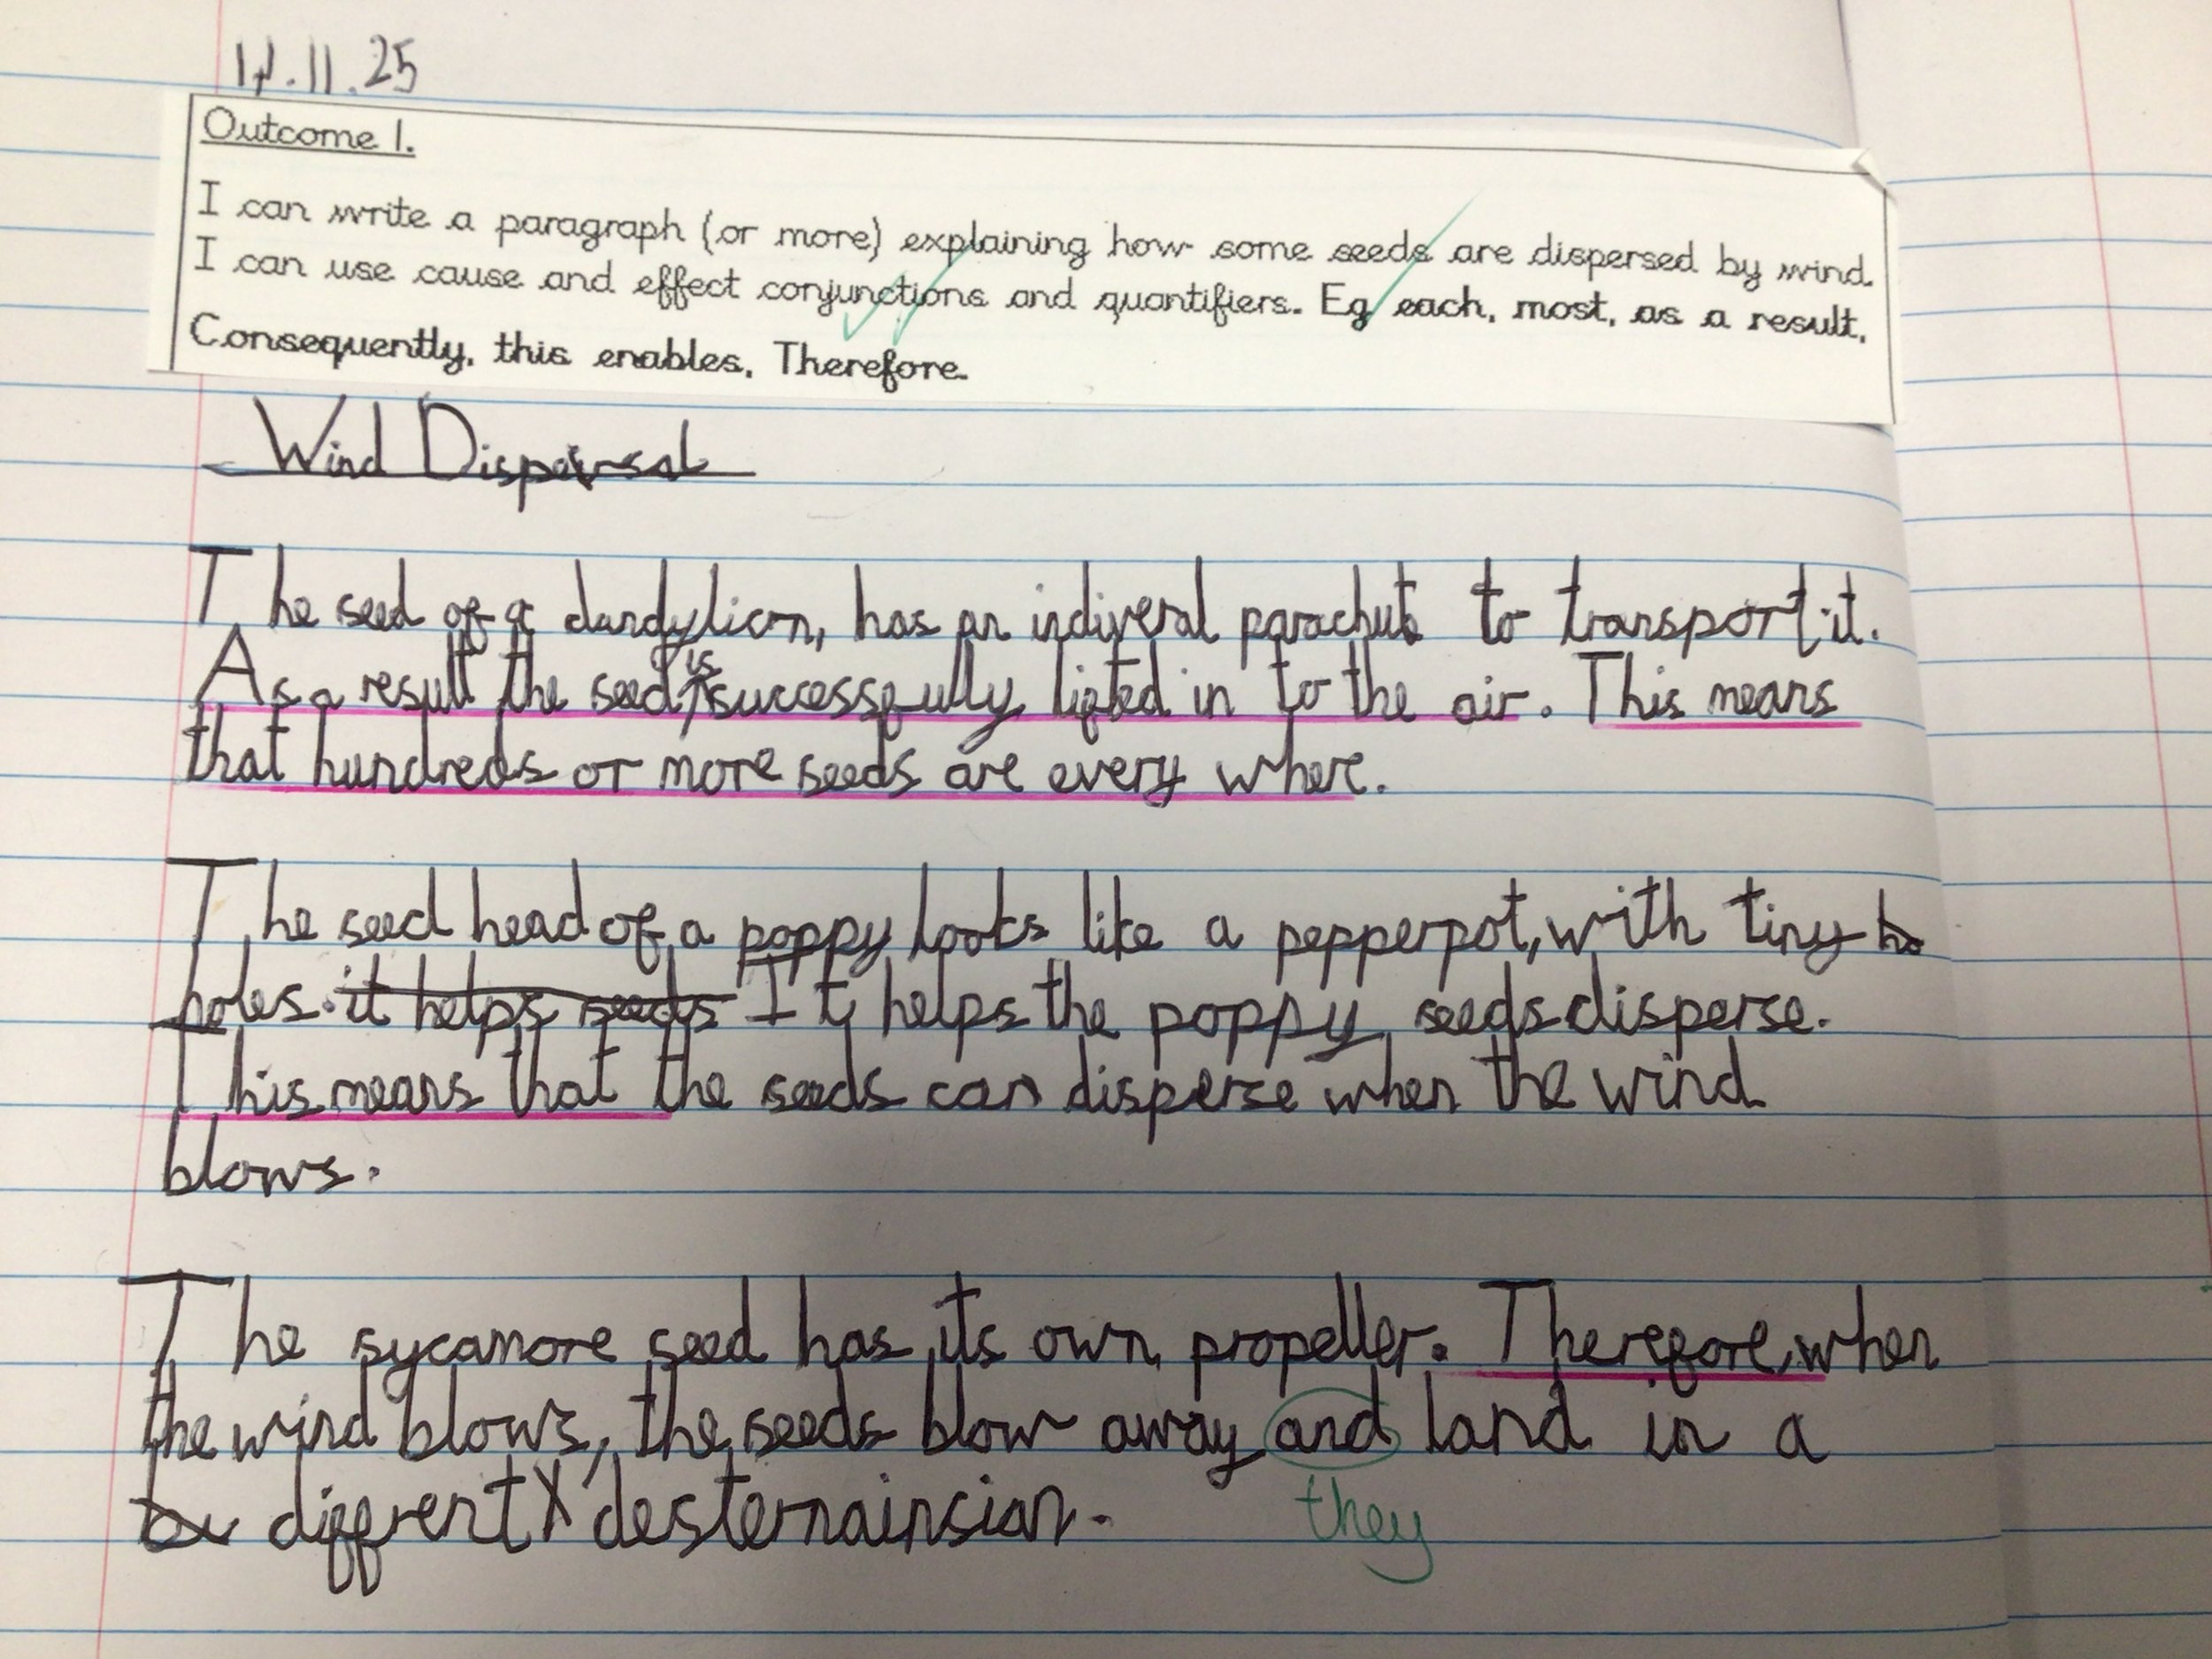 17.11.25
Outcome 1.
I can write a paragraph (or more) explaining how some seeds are dispersed by wind.
I can use cause and effect conjunctions and quantifiers. Eg each, most, as a result,
Consequently, this enables, Therefore.
Wind Dispersal
The seed of a dandylion, has an indiveral parachute to transport it.
As a result the seed is successfully lifted in to the air. This means
that hundreds or more seeds are every where.
The seed head of a poppy looks like a pepperpot, with tiny ho
holes. it helps seeds It helps the poppy seeds disperse.
This means that the seeds can disperse when the wind
blows.
The sycamore seed has its own propeller. Therefore, when
the wind blows, the seeds blow away and land in a
diffrent desternainsian.
they